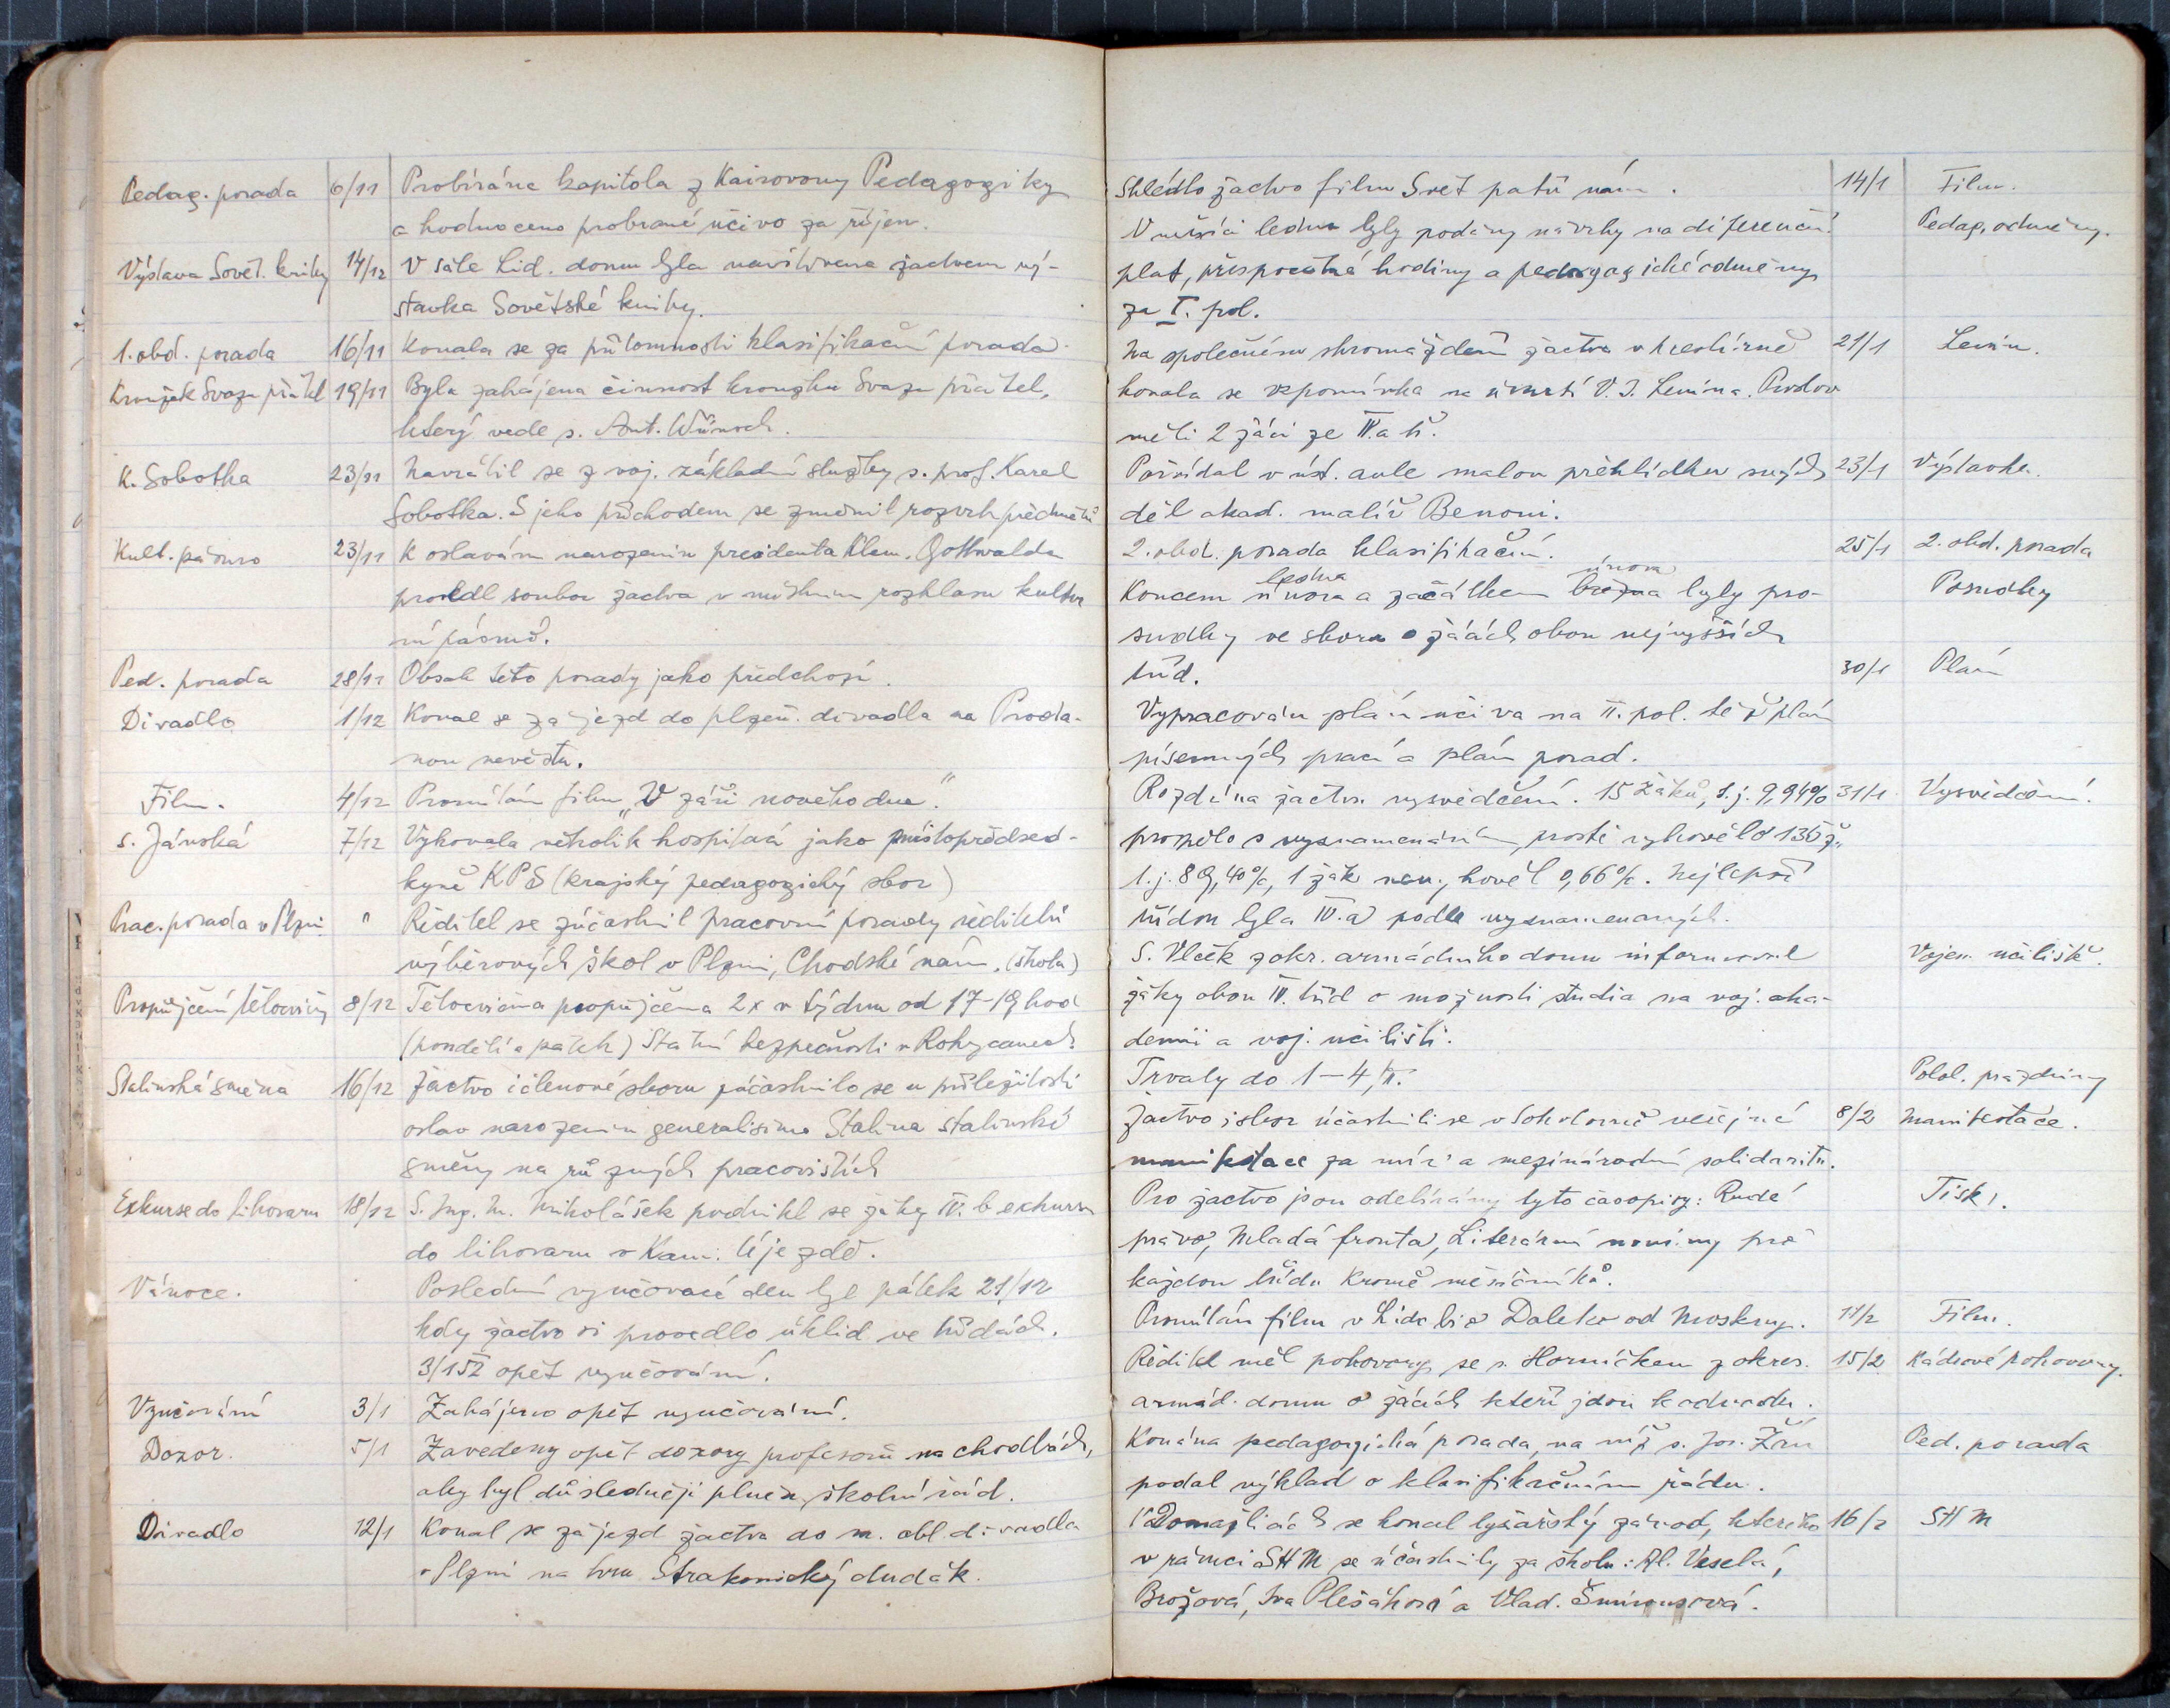 Pedag. porada 6/11 Probírána kapitola z Kairovovy Pedagogiky
a hodnoceno probrané učivo za říjen.
Výstava Sovět. knihy 14/12 V sále Lid. domu byla navštívena žactvem vý-
stavka Sovětské knihy.
1. obd. porada 16/11 Konala se za přítomnosti klasifikační porada.
Kroužek Svazu přátel 19/11 Byla zahájena činnost kroužku Svazu přátel,
který vede s. Ant. Wünsch.
K. Sobotka 23/11 Navrátil se z voj. základní služby s. prof. Karel
Sobotka. S jeho příchodem se změnil rozvrh předmětů
Kult. pásmo 23/11 K oslavám narozenin presidenta Klem. Gottwalda
provedl soubor žactva v místním rozhlasu kultur
ní pásmo.
Ped. porada 28/11 Obsah této porady jako předchozí.
Divadlo 1/12 Konal se zájezd do plzeň. divadla na Proda-
nou nevěstu.
Film. 4/12 Promítán film „V záři nového dne“.
s. Jánská 7/12 Vykonala několik hospitací jako místopředsed-
kyně KPS (krajský pedagogický sbor)
Prac. porada v Plzni " Ředitel se zúčastnil pracovní porady ředitelů
výběrových škol v Plzni, Chodské nám. (škola)
Propůjčení tělocvičny 8/12 Tělocvična propůjčena 2x v týdnu od 17-19 hod
(pondělí a pátek) Státní bezpečnosti v Rokycanech.
Stalinská směna 16/12 Žactvo i členové sboru zúčastnilo se u příležitosti
oslav narozenin generalisima Stalina stalinské
směny na různých pracovištích
Exkurse do lihovaru 18/12 S. Ing. M. Mikolášek podnikl se žáky IV. b exkursi
do lihovaru v Kam. Újezdě.
Vánoce. Poslední vyučovací den byl pátek 21/12
kdy žactvo si provedlo úklid ve třídách.
3/1 52 opět vyučování.
Vyučování 3/1 Zahájeno opět vyučování.
Dozor. 5/1 Zavedeny opět dozory profesorů na chodbách,
aby byl důsledněji plněn školní řád.
Divadlo 12/1 Konal se zájezd žactva do m. obl. divadla
v Plzni na hru Strakonický dudák.
Shlédlo žactvo film Svět patří nám. 14/1 Film.
V měsíci lednu byly podány návrhy na diferenční Pedag. odměny.
plat, přespočetné hodiny a pedagogické odměny
za I. pol.
Na společném shromáždění žactva v kreslírně 21/1 Lenin.
konala se vzpomínka na úmrtí V. I. Lenina. Proslov
měli 2 žáci ze IV. a tř.
Pořádal v úst. aule malou přehlídku svých 23/1 Výstavka.
děl akad. malíř Benoni.
2. obd. porada klasifikační. 25/1 2. obd. porada
ledna února
Koncem února a začátkem března byly pro- Posudky
sudky ve sboru o žácích obou nejvyšších
tříd. 30/1 Plán
Vypracován plán učiva na II. pol. též plán
písemných prací a plán porad.
Rozdána žactvu vysvědčení. 15 žáků, t. j. 9,94% 31/1 Vysvědčení.
prospělo s vyznamenáním, prostě vyhovělo 135 ž.,
t. j. 89,40%, 1 žák nevyhověl 0,66%. Nejlepší
třídou byla IV. a podle vyznamenaných.
S. Vlček z okr. armádního domu informoval Vojen. učiliště.
žáky obou IV. tříd o možnosti studia na voj. aka-
demii a voj. učilišti.
Trvaly do 1-4/II. Polol. prázdniny
Žactvo i sbor účastnili se v Sokolovně veřejné 8/2 Manifestace.
manifestace za mír a mezinárodní solidaritu.
Pro žactvo jsou odebírány tyto časopisy: Rudé Tisk.
právo, Mladá fronta, Literární noviny pro
každou třídu kromě měsíčníků.
Promítán film v Lidobio Daleko od Moskvy. 11/2 Film.
Ředitel měl pohovory se s. Horníčkem z okres. 15/2 Kádrové pohovory.
armád. domu o žácích kteří jdou k odvodu.
Konána pedagogická porada, na níž s. Jos. Ped. porada
podal výklad o klasifikačním řádu.
V Domažlicích se konal lyžařský závod, kterého 16/2 SHM
v rámci SHM se účastnily za školu: Al. Veselá,
Brožová, Iva Plešáková a Vlad.